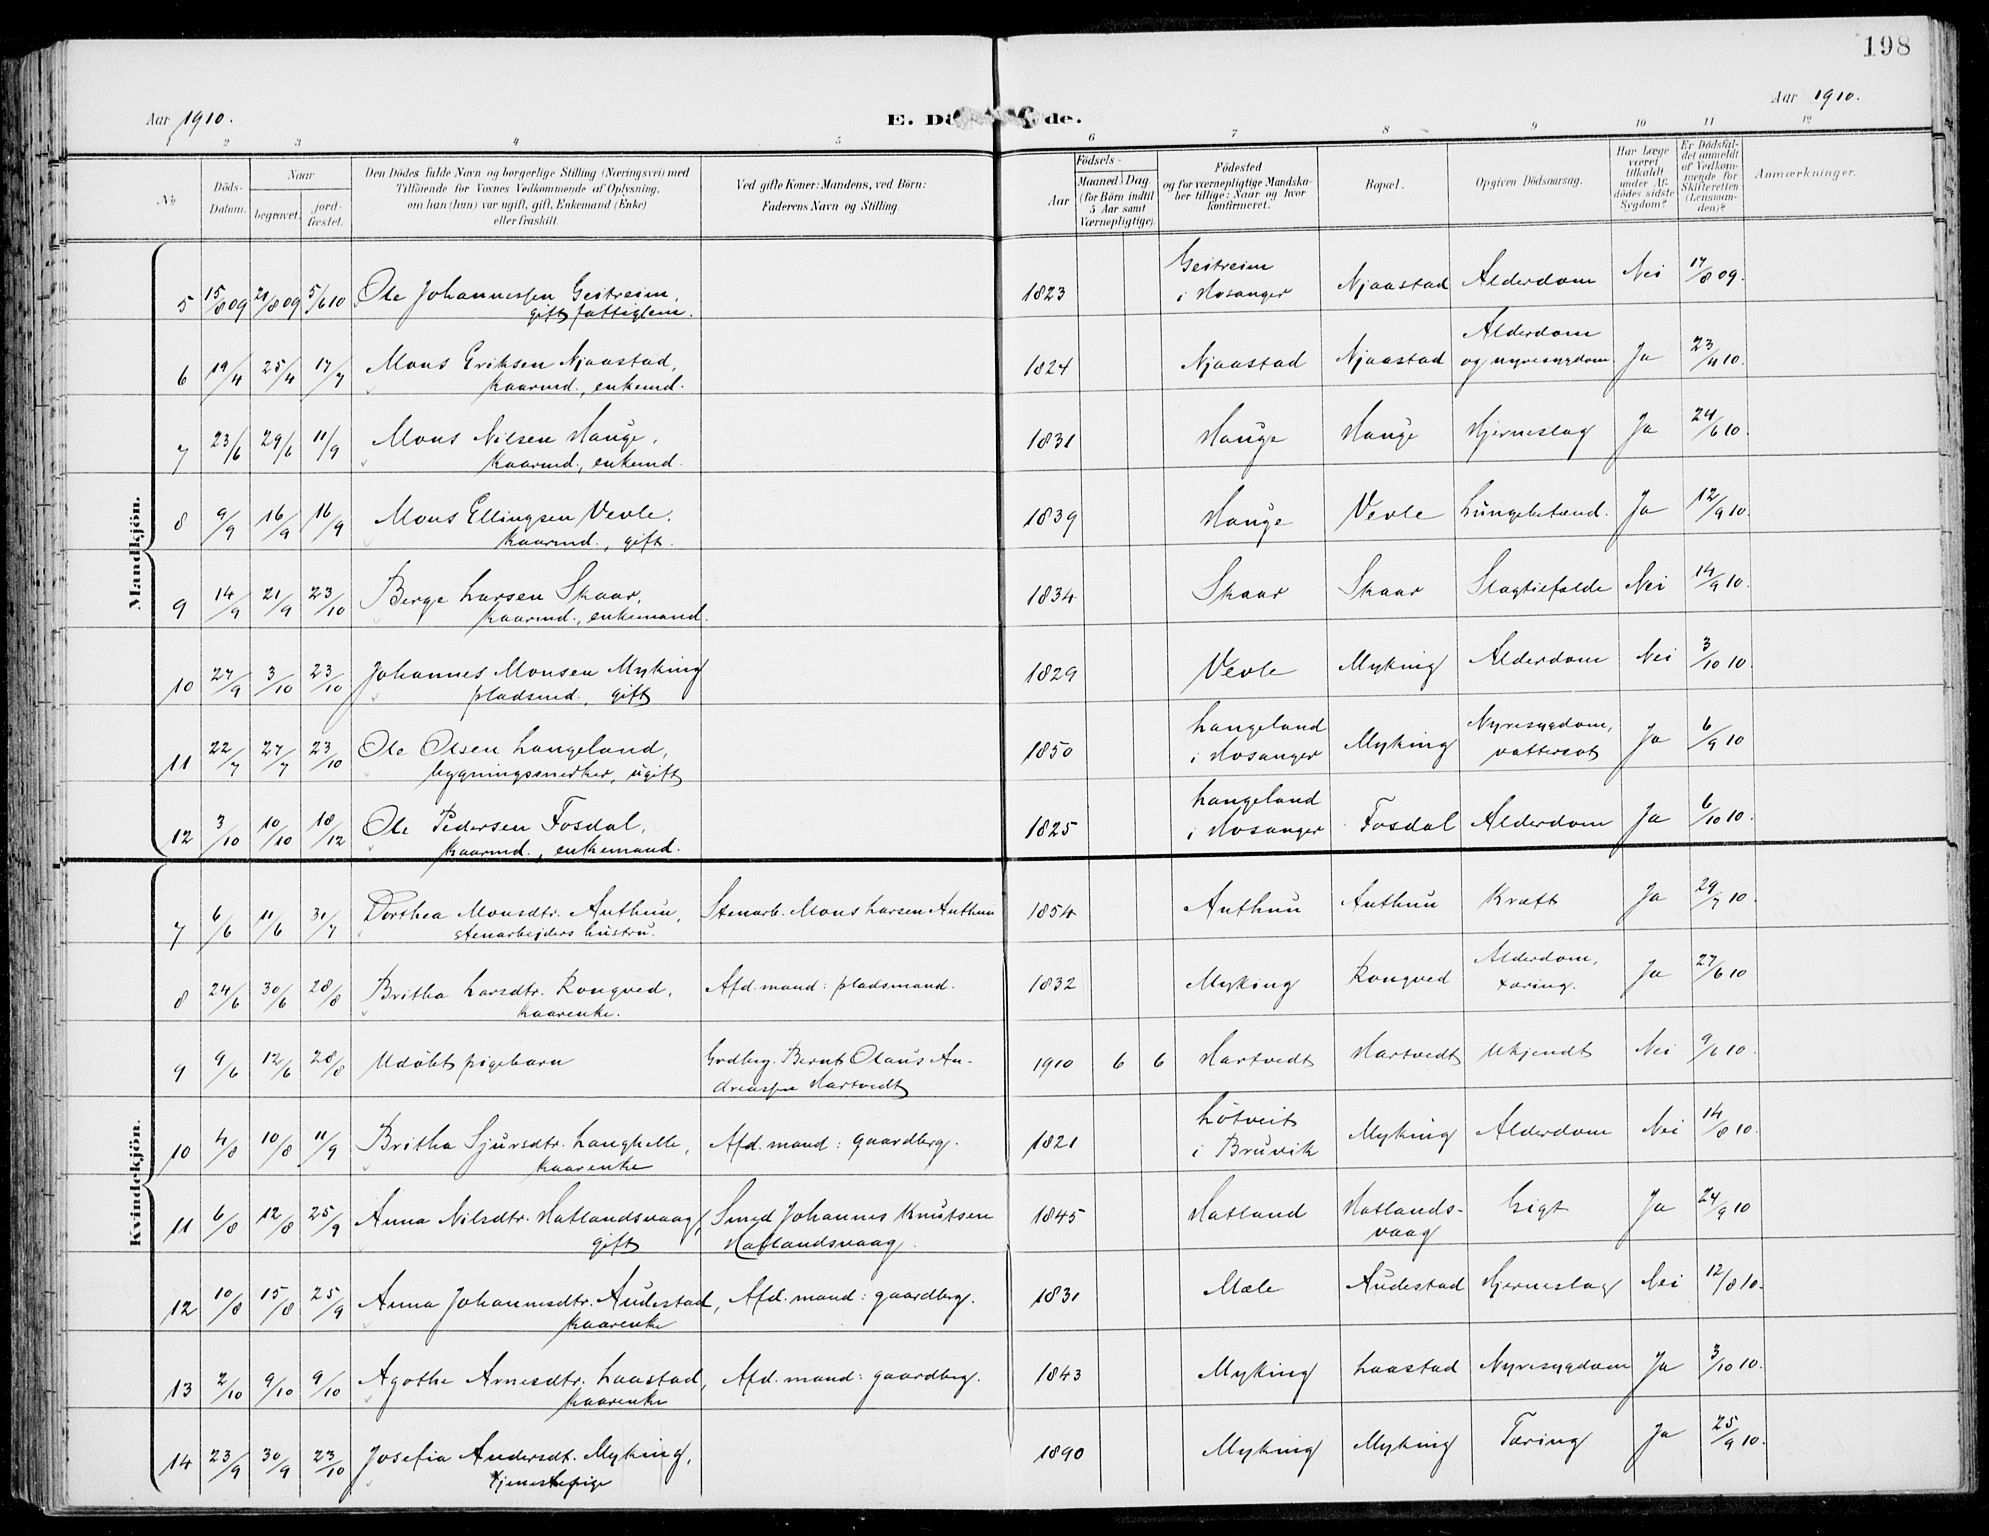 198
Aar 1910.
E. Dø de.
Aar 1910.
1 2 3 4 5 6 7 8 9 10 11 12
No
Døds-
Datum.
Naar
begravet.
jord-
fæstet.
Den Dødes fulde Navn og borgerlige Stilling (Næringsvei) med
Tilføiende for Voxnes Vedkommende af Oplysning,
om han (hun) var ugift, gift, Enkemand (Enke)
eller fraskilt.
Ved gifte Koner: Mandens, ved Børn:
Faderens Navn og Stilling.
Aar
Fødsels-
Maaned. Dag.
(for Børn indtil
5 Aar samt
Værnepligtige).
Fødested
og for værnepligtige Mandska-
ber tillige: Naar og hvor
konfirmeret.
Bopæl.
Opgiven Dødsaarsag.
Har Læge
været
tilkaldt
under Af-
dødes sidste
Sygdom?
Er Dødsfal-
det anmeldt
af Vedkom-
mende for
Skifteretten
(Lensman-
den)?
Anmærkninger.
Mandkjön.
5 15/8 09 21/8 09 5/6 10 Ole Johannessen Geitreim, 1823 Geitreim i Hosanger Njaastad Alderdom Nei 17/8 09.
gift fattiglem.
6 19/4 25/4 17/7 Mons Eriksen Njaastad, 1824 Njaastad Njaastad Alderdom og nyresygdom Ja 23/4 10.
kaarmd., enkemd.
7 23/6 29/6 11/9 Mons Nilsen Hauge, 1831 Hauge Hauge Hjerneslag Ja 24/6 10.
kaarmd., enkemd.
8 9/9 16/9 16/9 Mons Ellingsen Vevle. 1839 Hauge Vevle Lungebetænd. Ja 12/9 10.
kaarmd., gift.
9 14/9 21/9 23/10 Berge Larsen Skaar, 1834 Skaar Skaar Slagtilfælde Nei 14/9 10.
kaarmd., enkemand.
10 27/9 3/10 23/10 Johannes Monsen Myking 1829 Vevle Myking Alderdom Nei 3/10 10.
pladsmd., gift
11 22/7 27/7 23/10 Ole Olsen Langeland, 1850 Langeland i Hosanger Myking Nyresygdom, vattersot Ja 6/9 10
bygningssnerker, ugift
12 3/10 10/10 18/12 Ole Pedersen Fosdal, 1825 Langeland i Hosanger Fosdal Alderdom Ja 6/10 10.
kaarmd., enkemand.
Kvindekjön.
7 6/6 11/6 31/7 Dorthea Monsdtr. Anthun, Stenarb. Mons Larsen Anthun 1854 Anthun Anthun Kræft Ja 29/7 10.
stenarbejders hustru.
8 24/6 30/6 28/8 Britha Larsdtr. Rongved, Afd. mand: pladsmand. 1832 Myking Rongved Alderdom, tæring. Ja 27/6 10
kaarenke.
9 9/6 12/6 28/8 Udöbt pigebarn Grdbrg. Bernt Olaus An- 1910 6 6 Hartvedt Hartvedt Ukjendt Nei 9/6 10.
dreassen Hartvedt
10 4/8 10/8 11/9 Britha Sjursdtr. Langhelle, Afd. mand: gaardbrg. 1821 Lötveit i Bruvik Myking Alderdom Nei 14/8 10.
kaarenke
11 6/8 12/8 25/9 Anna Nilsdtr. Hatlandsvaag, Smed Johannes Knutsen 1845 Hatland Hatlands- vaag Gigt Ja 24/9 10
gift Hatlandsvaag.
12 10/8 15/8 25/9 Anna Johannesdtr. Audestad, Afd. mand: gaardbrg. 1831 Mæle Audestad Hjerneslag Nei 12/8 10.
kaarenke
13 2/10 9/10 9/10 Agothe Arnesdtr. Laastad, Afd. mand: gaardbrg. 1843 Myking Laastad Nyresygdom Ja 3/10 10.
kaarenke
14 23/9 30/9 23/10 Josefia Andersdt. Myking, 1890 Myking Myking Tæring Ja 25/9 10.
tjenestepige